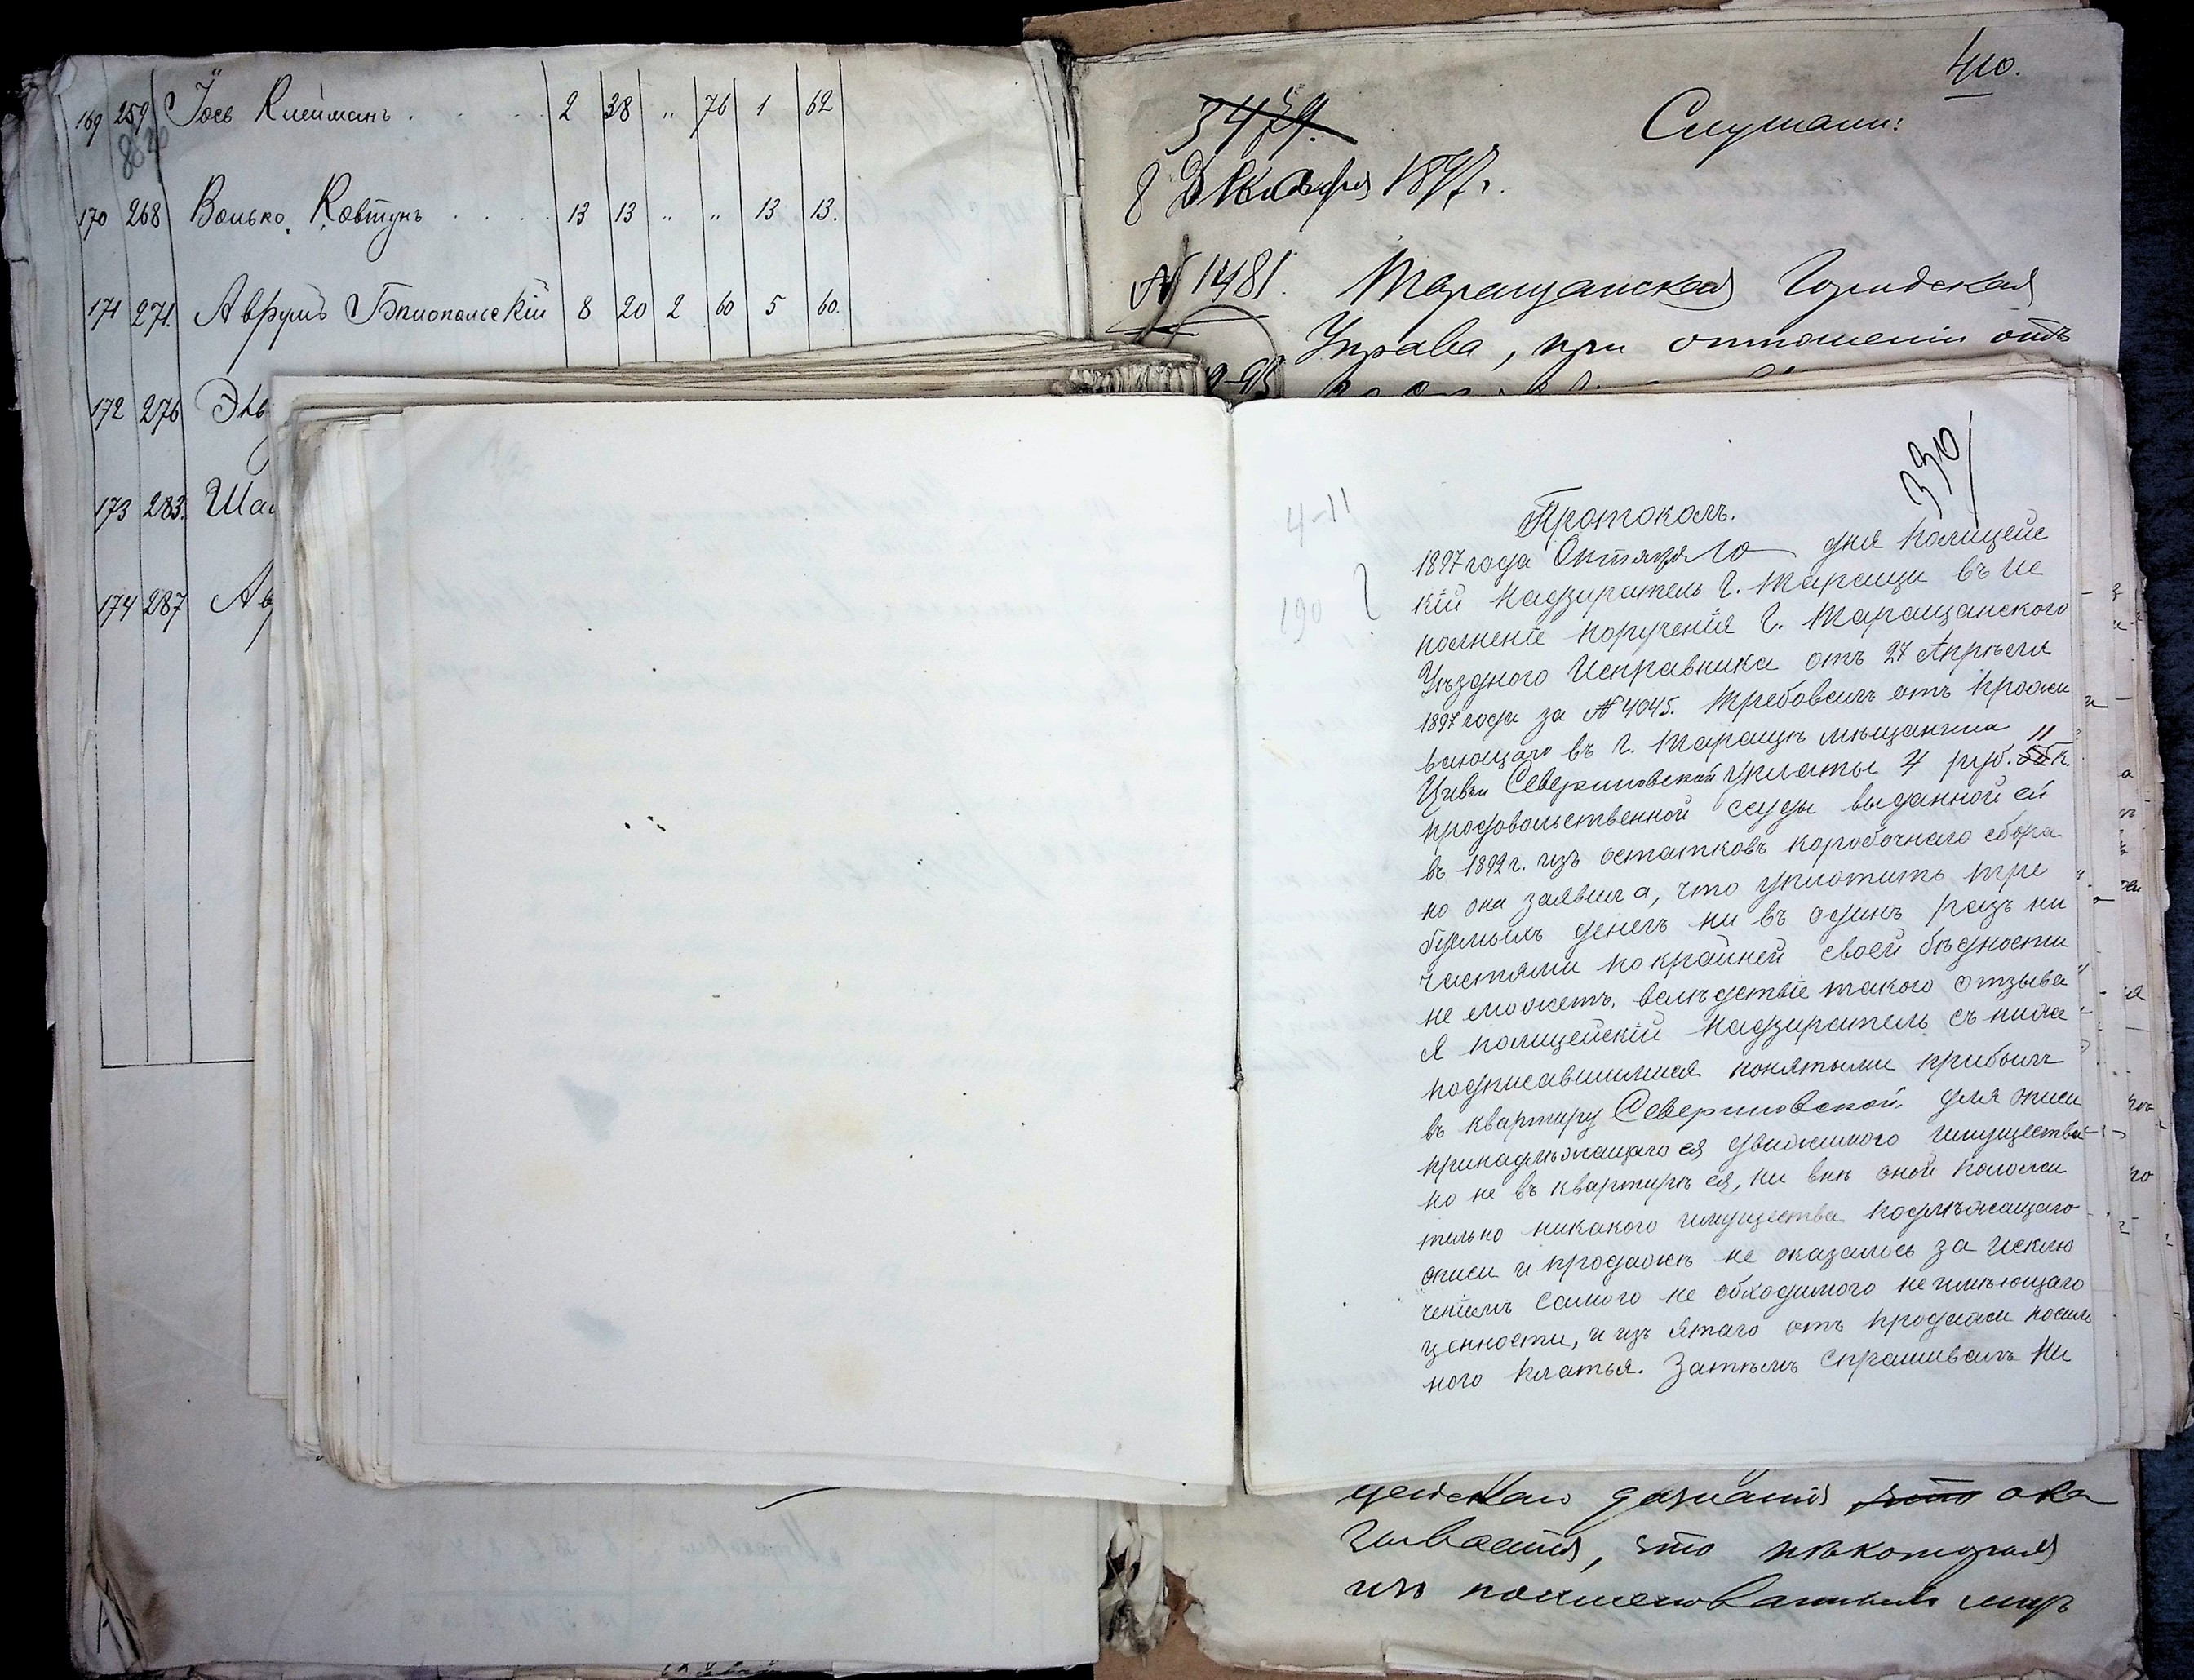 169 259 Іось Клейманъ . . . . 2 38 „ 76 1 62
170 268 Волько Ковтунъ . . . . 13 13 „ „ 13 13.
171 271. Аврумъ Бялопольскій 8 20 2 60 5 60.
172 276
173 283.
174 287
410.
Слушали:
8 Декабря 1897 г.
№ 1481. Таращанская Городская
Управа, при отношеніи отъ
330
4-11
190
Протоколъ.
1897 года Октября 10 дня Полицейс
кій Надзиратель г. Таращи въ ис
полненіе порученія г. Таращанского
Уѣздного Исправника отъ 27 Апрѣля
1897 года за № 4045. требовалъ отъ прожи
вающаго въ г. Таращѣ мѣщанина
Цивьи Севериновской уплаты 4 руб. 11 к.
продовольственной ссуды выданной ей
въ 1892 г. изъ остатковъ коробочнаго сбора
но она заявила, что уплотить тре
буемыхъ денегъ ни въ одинъ разъ ни
частями по крайней своей бѣдности
не можетъ, вслѣдствіе такого отзыва
я полицейскій Надзиратель съ ниже
подписавшимися понятыми прибылъ
въ квартиру Севериновской, для описи
принадлѣжащаго ея движимого имущества
но не въ квартирѣ ея, ни внѣ оной положи
тельно никакого имущества подлѣжащаго
описи и продажѣ не оказалось за исклю
ченіемъ самого не обходимого не имѣющаго
ценности, и изъ ятаго отъ продажи носиль
ного платья. Затѣмъ спрашивалъ Ни
дознанія что ока
зывается, что нѣкоторыя
изъ поименованныхъ лицъ